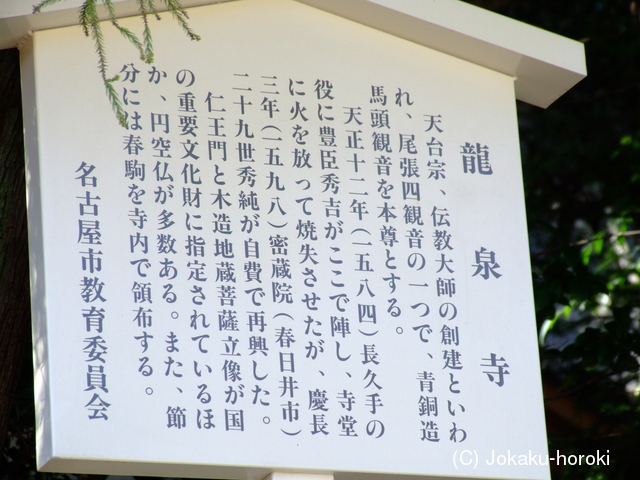 龍泉寺
天台宗、伝教大師の創建といわ
れ、尾張四観音の一つで、青銅造
馬頭観音を本尊とする。
天正十二年（一五八四）長久手の
役に豊臣秀吉がここで陣し、寺堂
に火を放って焼失させたが、慶長
三年（一五九八）密蔵院（春日井市）
二十九世秀純が自費で再興した。
仁王門と木造地蔵菩薩立像が国
の重要文化財に指定されているほ
か、円空仏が多数ある。また、節
分には春駒を寺内で頒布する。
名古屋市教育委員会
(C) Jokaku-horoki